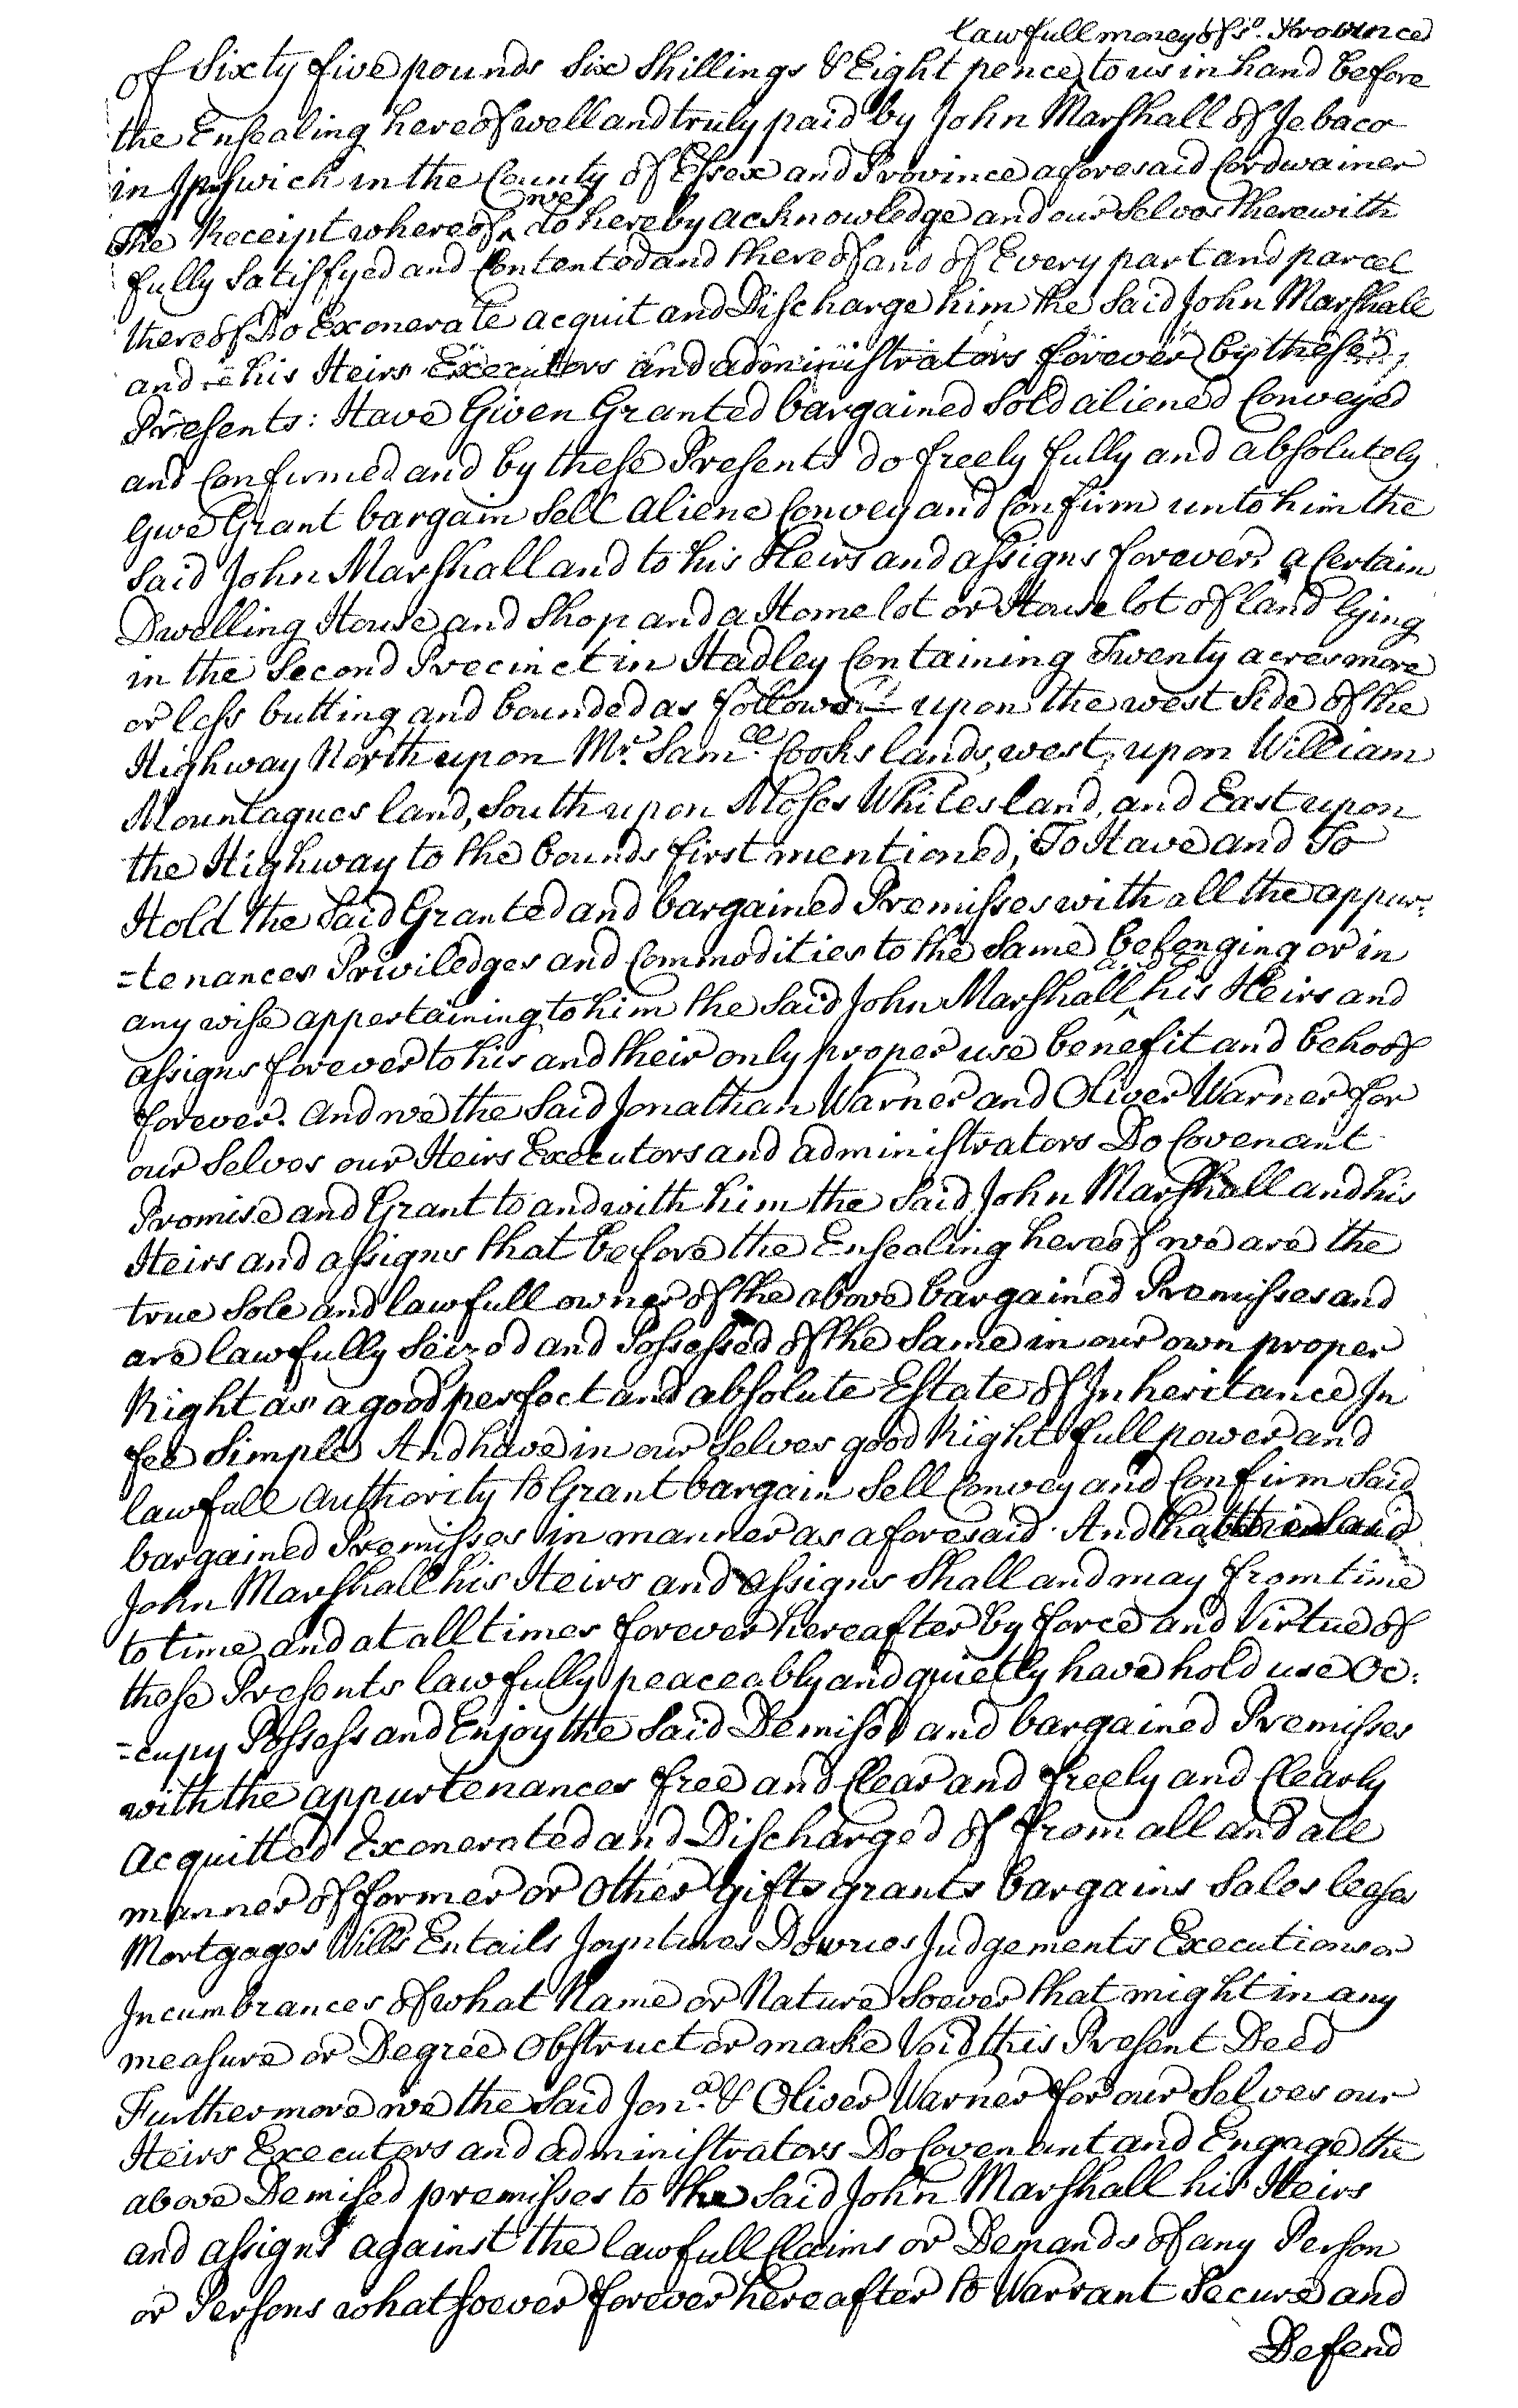 lawfull money of sd. Province
of Sixty five pounds Six Shillings & Eight pence to us in hand before
the Ensealing hereof well and truly paid by John Marshall of Jebaco
in Ipswich in the County of Essex and Province aforesaid Cordwainer
we
The Receipt whereof ‸ do hereby acknowledge and our Selves Therewith
fully Satisfyed and Contented and thereof and of Every part and parcel
thereof Do Exonerate acquit and Discharge him the Said John Marshall
and his Heirs Executors and administrators forever by these
Presents: Have Given Granted bargained Sold aliened Conveyed
and Confirmed and by these Presents do freely fully and absolutely
Give Grant bargain Sell aliene Convey and Confirm unto him the
Said John Marshall and to his Heirs and assigns forever, a Certain
Dwelling House and Shop and a Home lot or House lot of land lying
in the Second Precinct in Hadley Containing Twenty acres more
or less butting and bounded as follows upon the west Side of the
Highway North upon Mr. Samll. Cooks lands, west, upon William
Mountagues land, South upon Moses Whites land, and East upon
the Highway to the bounds first mentioned; To Have and To
Hold the Said Granted and bargained Premisses with all the appur:
=tenances Priviledges and Commodities to the Same belonging or in
and
any wise appertaining to him the Said John Marshall ‸ his Heirs and
assigns forever to his and their only proper use benefit and behoof
forever. And we the Said Jonathan Warner and Oliver Warner for
our Selves our Heirs Executors and administrators Do Covenant
Promise and Grant to and with him the Said John Marshall and his
Heirs and assigns that before the Ensealing hereof we are the
true Sole and lawfull owner of the above bargained Premisses and
are lawfully Seized and Possessed of the Same in our own proper
Right as a good perfect and absolute Estate of Inheritance In
fee Simple And have in our Selves good Right full power and
lawfull Authority to Grant bargain Sell Convey and Confirm Said
bargained Premisses in manner as aforesaid. And that the Said
John Marshall his Heirs and assigns Shall and may from time
to time and at all times forever hereafter by force and Virtue of
these Presents lawfully peaceably and quietly have hold use Oc:
=cupy Possess and Enjoy the Said Demised and bargained Premisses
with the appurtenances free and Clear and freely and Clearly
Acquitted Exonerated and Discharged of from all and all
manner of former or other gifts grants bargains Sales leases
Mortgages Wills Entails Joyntures Dowries Judgements Executions or
Incumbrances of what Name or Nature Soever that might in any
measure or Degree Obstruct or make Void this Present Deed
Furthermore we the Said Jona. & Oliver Warner for our Selves our
Heirs Executors and administrators Do Covenant and Engage the
above Demised premisses to the Said John Marshall his Heirs
and assigns against the lawfull Claims or Demands of any Person
or Persons whatsoever forever hereafter to Warrant Secure and
Defend